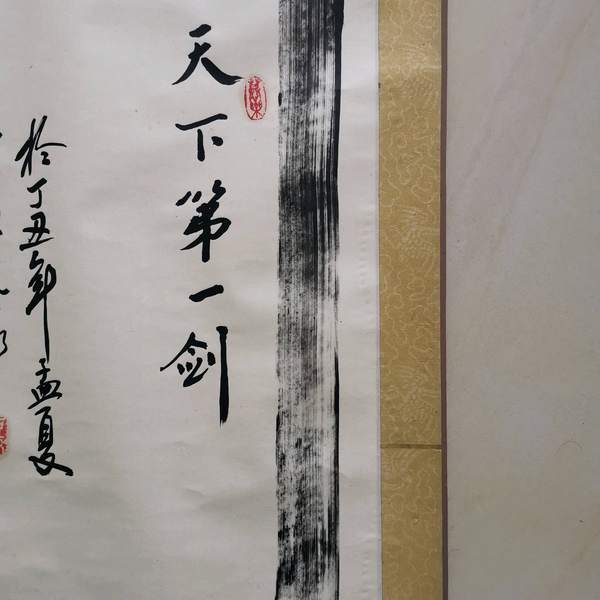 天下第一剑
於丁丑年孟夏